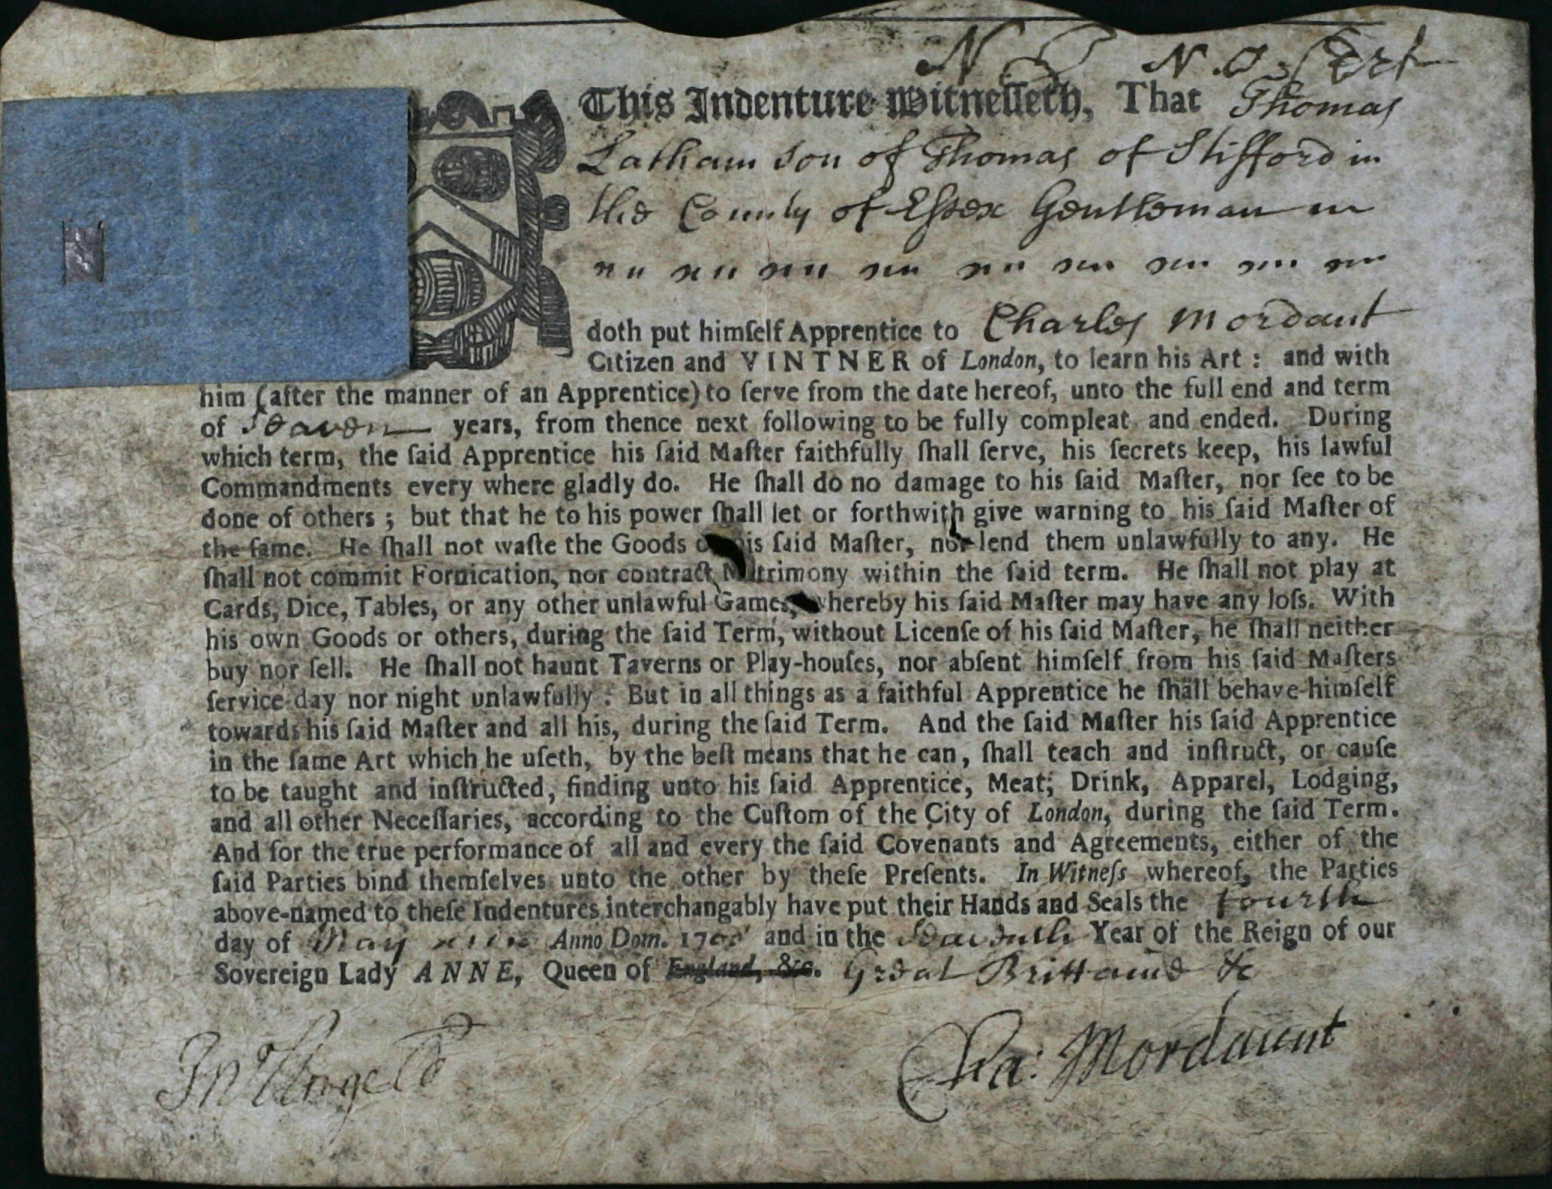 This Indenture Witnesseth, That Thomas
Latham son of Thomas of Stifford in
the County of Essex Gentleman
doth put himſelf Apprentice to Charles Mordaut
Citizen and VINTNER of London, to learn his Art : and with
him (after the manner of an Apprentice) to ſerve from the date hereof, unto the full end and term
of Seaven years, from thence next following to be fully compleat and ended. During
which term, the ſaid Apprentice his ſaid Maſter faithfully ſhall ſerve, his ſecrets keep, his lawful
Commandments every where gladly do. He ſhall do no damage to his ſaid Maſter, nor ſee to be
done of others ; but that he to his power ſhall let or forthwith give warning to his ſaid Maſter of
the ſame. He ſhall not waſte the Goods his ſaid Maſter, nor lend them unlawfully to any. He
ſhall not commit Fornication, nor contract Matrimony within the ſaid term. He ſhall not play at
Cards, Dice, Tables, or any other unlawful Games, whereby his ſaid Maſter may have any loſs. With
his own Goods or others, during the ſaid Term, without Licenſe of his ſaid Maſter, he ſhall neither
buy nor ſell. He ſhall not haunt Taverns or Play-houſes, nor abſent himſelf from his ſaid Maſters
ſervice day nor night unlawfully : But in all things as a faithful Apprentice he ſhall behave himſelf
towards his ſaid Maſter and all his, during the ſaid Term. And the ſaid Maſter his ſaid Apprentice
in the ſame Art which he uſeth, by the beſt means that he can, ſhall teach and inſtruct, or cauſe
to be taught and inſtructed, finding unto his ſaid Apprentice, Meat, Drink, Apparel, Lodging,
and all other Neceſſaries, according to the Cuſtom of the City of London, during the ſaid Term.
And for the true performance of all and every the ſaid Covenants and Agreements, either of the
ſaid Parties bind themſelves unto the other by theſe Preſents. In Witneſs whereof, the Parties
above-named to theſe Indentures interchangably have put their Hands and Seals the fourth
day of May Anno Dom. and in the Seaventh Year of the Reign of our
Sovereign Lady ANNE, Queen of England, &c. Great Brittaine &c
Cha: Mordaunt